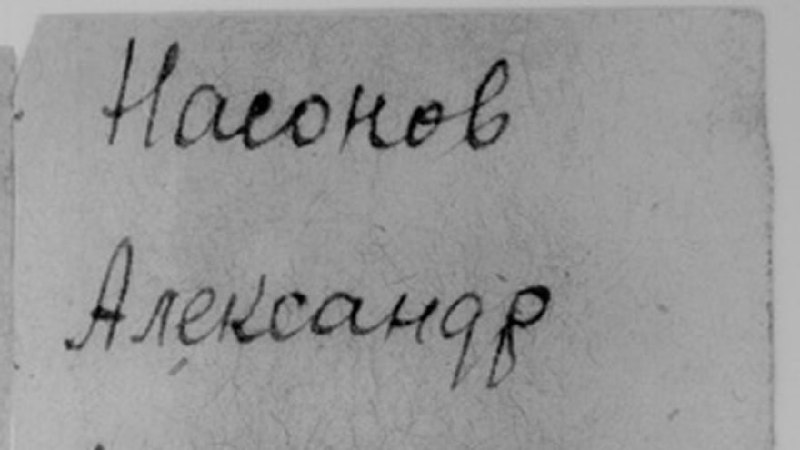 Насонов
Александр